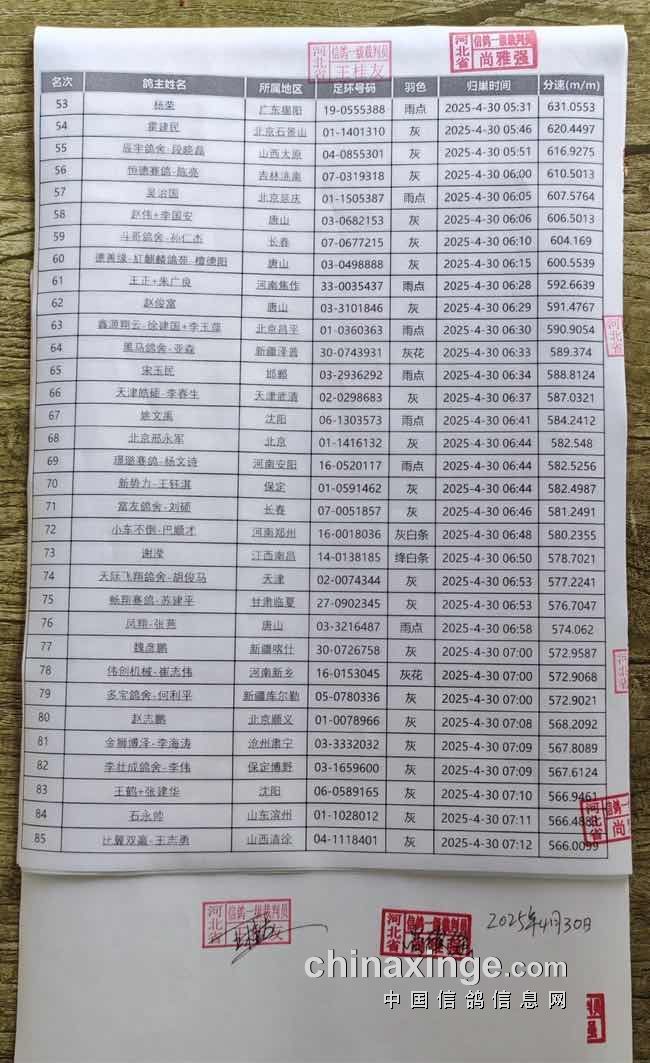 河北省 信鸽一级裁判员 王桂友
河北省 信鸽一级裁判员 尚雅强
名次 鸽主姓名 所属地区 足环号码 羽色 归巢时间 分速(m/m)
53 杨荣 广东揭阳 19-0555388 雨点 2025-4-30 05:31 631.0553
54 霍建民 北京石景山 01-1401310 灰 2025-4-30 05:46 620.4497
55 辰宇鸽舍-段晓磊 山西太原 04-0855301 灰 2025-4-30 05:51 616.9275
56 恒德赛鸽-陈亮 吉林洮南 07-0319318 灰 2025-4-30 06:00 610.5013
57 吴治国 北京延庆 01-1505387 雨点 2025-4-30 06:05 607.5764
58 赵伟+李国安 唐山 03-0682153 灰 2025-4-30 06:06 606.5013
59 斗哥鸽舍-孙仁杰 长春 07-0677215 灰 2025-4-30 06:10 604.169
60 德善缘-紅麒麟鸽苑-檀德阳 唐山 03-0498888 灰 2025-4-30 06:15 600.5539
61 王正+朱广良 河南焦作 33-0035437 雨点 2025-4-30 06:28 592.6639
62 赵俊富 唐山 03-3101846 灰 2025-4-30 06:29 591.4767
63 鑫源翔云-徐建国+李玉萍 北京昌平 01-0360363 雨点 2025-4-30 06:30 590.9054
64 黑马鸽舍-亚森 新疆泽普 30-0743931 灰花 2025-4-30 06:33 589.374
65 宋玉民 邯郸 03-2936292 雨点 2025-4-30 06:34 588.8124
66 天津皓硕-李春生 天津武清 02-0298683 灰 2025-4-30 06:37 587.0321
67 姚文禹 沈阳 06-1303573 雨点 2025-4-30 06:41 584.2412
68 北京邢永军 北京 01-1416132 灰 2025-4-30 06:44 582.548
69 璟璐赛鸽-杨文诗 河南安阳 16-0520117 雨点 2025-4-30 06:44 582.5256
70 新势力-王钰淇 保定 01-0591462 灰 2025-4-30 06:44 582.4987
71 富友鸽舍-刘硕 长春 07-0051857 灰 2025-4-30 06:46 581.2491
72 小车不倒-巴顺才 河南郑州 16-0018036 灰白条 2025-4-30 06:48 580.2355
73 谢滢 江西南昌 14-0138185 绛白条 2025-4-30 06:50 578.7021
74 天际飞翔鸽舍-胡俊马 天津 02-0074344 灰 2025-4-30 06:53 577.2241
75 畅翔赛鸽-苏建平 甘肃临夏 27-0902345 灰 2025-4-30 06:53 576.7047
76 凤翔-张燕 唐山 03-3216487 雨点 2025-4-30 06:58 574.062
77 魏彦鹏 新疆喀什 30-0726758 灰 2025-4-30 07:00 572.9587
78 伟创机械-崔志伟 河南新乡 16-0153045 灰花 2025-4-30 07:00 572.9068
79 多宝鸽舍-何利平 新疆库尔勒 05-0780336 灰 2025-4-30 07:00 572.9021
80 赵志鹏 北京顺义 01-0078966 灰 2025-4-30 07:08 568.2092
81 金狮博泽-李海涛 沧州肃宁 03-3332032 灰 2025-4-30 07:09 567.8089
82 李壮成鸽舍-李伟 保定博野 03-1659600 灰 2025-4-30 07:09 567.6124
83 王鹤+张建华 沈阳 06-0589165 灰 2025-4-30 07:10 566.9461
84 石永帅 山东滨州 01-1028012 灰 2025-4-30 07:11 566.4888
85 比翼双赢-王志勇 山西清徐 04-1118401 灰 2025-4-30 07:12 566.0099
河北省
河北省
河北省 信鸽一级 尚
河北省 信鸽一级裁判员 王桂友
河北省 信鸽一级裁判员 尚雅强
2025年4月30日
chinaxinge.com
中国信鸽信息网